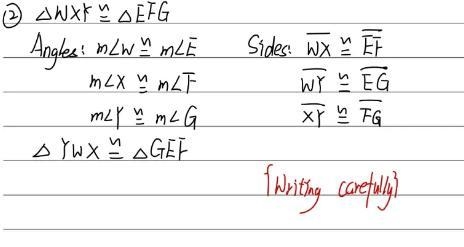 ② △WXY ≅ △EFG
Angles: m∠W ≅ m∠E Sides: W͞X ≅ E͞F
m∠X ≅ m∠F W͞Y ≅ E͞G
m∠Y ≅ m∠G X͞Y ≅ F͞G
△YWX ≅ △GEF
{Writing carefully}